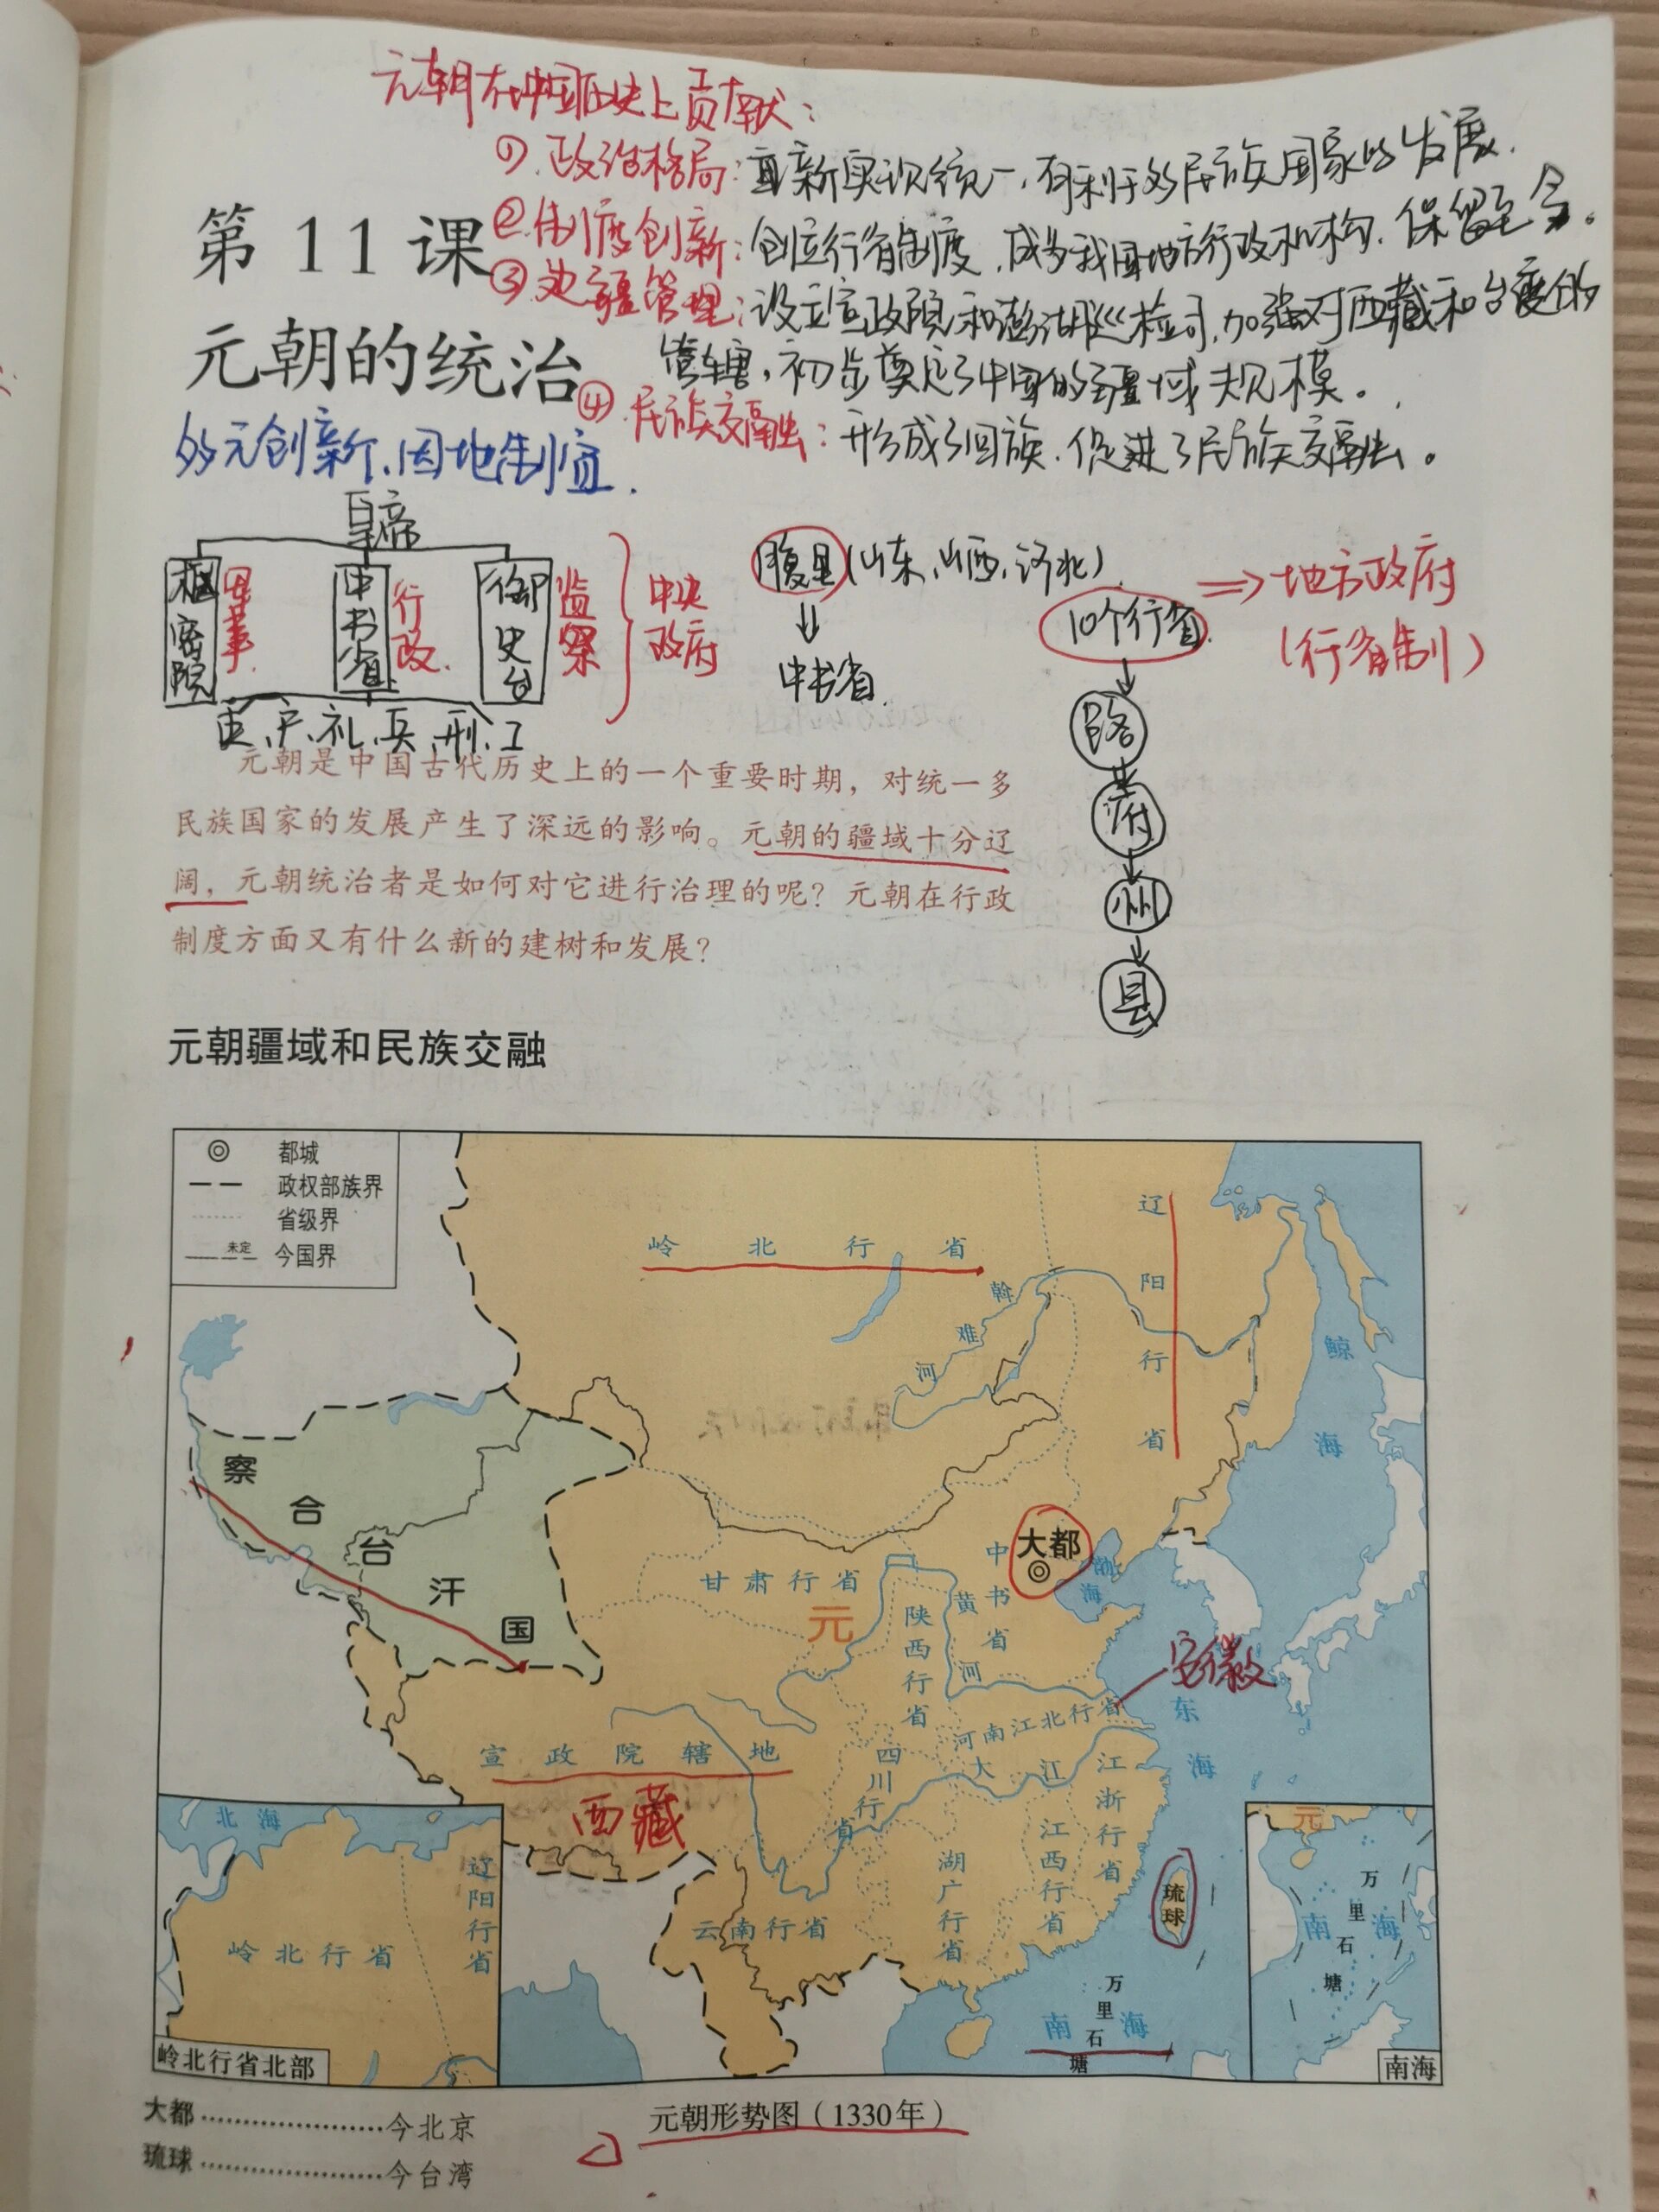 元朝在中国历史上贡献：
①政治格局：重新实现统一，有利于多民族国家的发展．
第 11 课
②制度创新：创立行省制度，成为我国地方行政机构，保留至今。
③边疆管理：设立宣政院和澎湖巡检司，加强对西藏和台湾的
管辖，初步奠定了中国的疆域规模。
元朝的统治
④民族交融：形成了回族，促进了民族交融。
多元创新、因地制宜．
皇帝
枢密院 军事
中书省 行政
御史台 监察
中央政府
吏、户、礼、兵、刑、工
腹里（山东、山西、河北）
中书省
10个行省
地方政府
（行省制）
路
府
州
县
元朝是中国古代历史上的一个重要时期，对统一多
民族国家的发展产生了深远的影响。元朝的疆域十分辽
阔，元朝统治者是如何对它进行治理的呢？元朝在行政
制度方面又有什么新的建树和发展？
元朝疆域和民族交融
都城
政权部族界
省级界
未定
今国界
岭北行省
辽阳行省
斡难河
鲸海
察合台汗国
大都
中书省
渤海
甘肃行省
元
陕西行省
黄河
安徽
河南江北行省
东海
宣政院辖地
西藏
四川行省
大江
江浙行省
江西行省
湖广行省
云南行省
琉球
万里石塘
南海
北海
辽阳行省
岭北行省
岭北行省北部
元
万里石塘
南海
南海
大都……………………今北京
琉球……………………今台湾
元朝形势图（1330年）